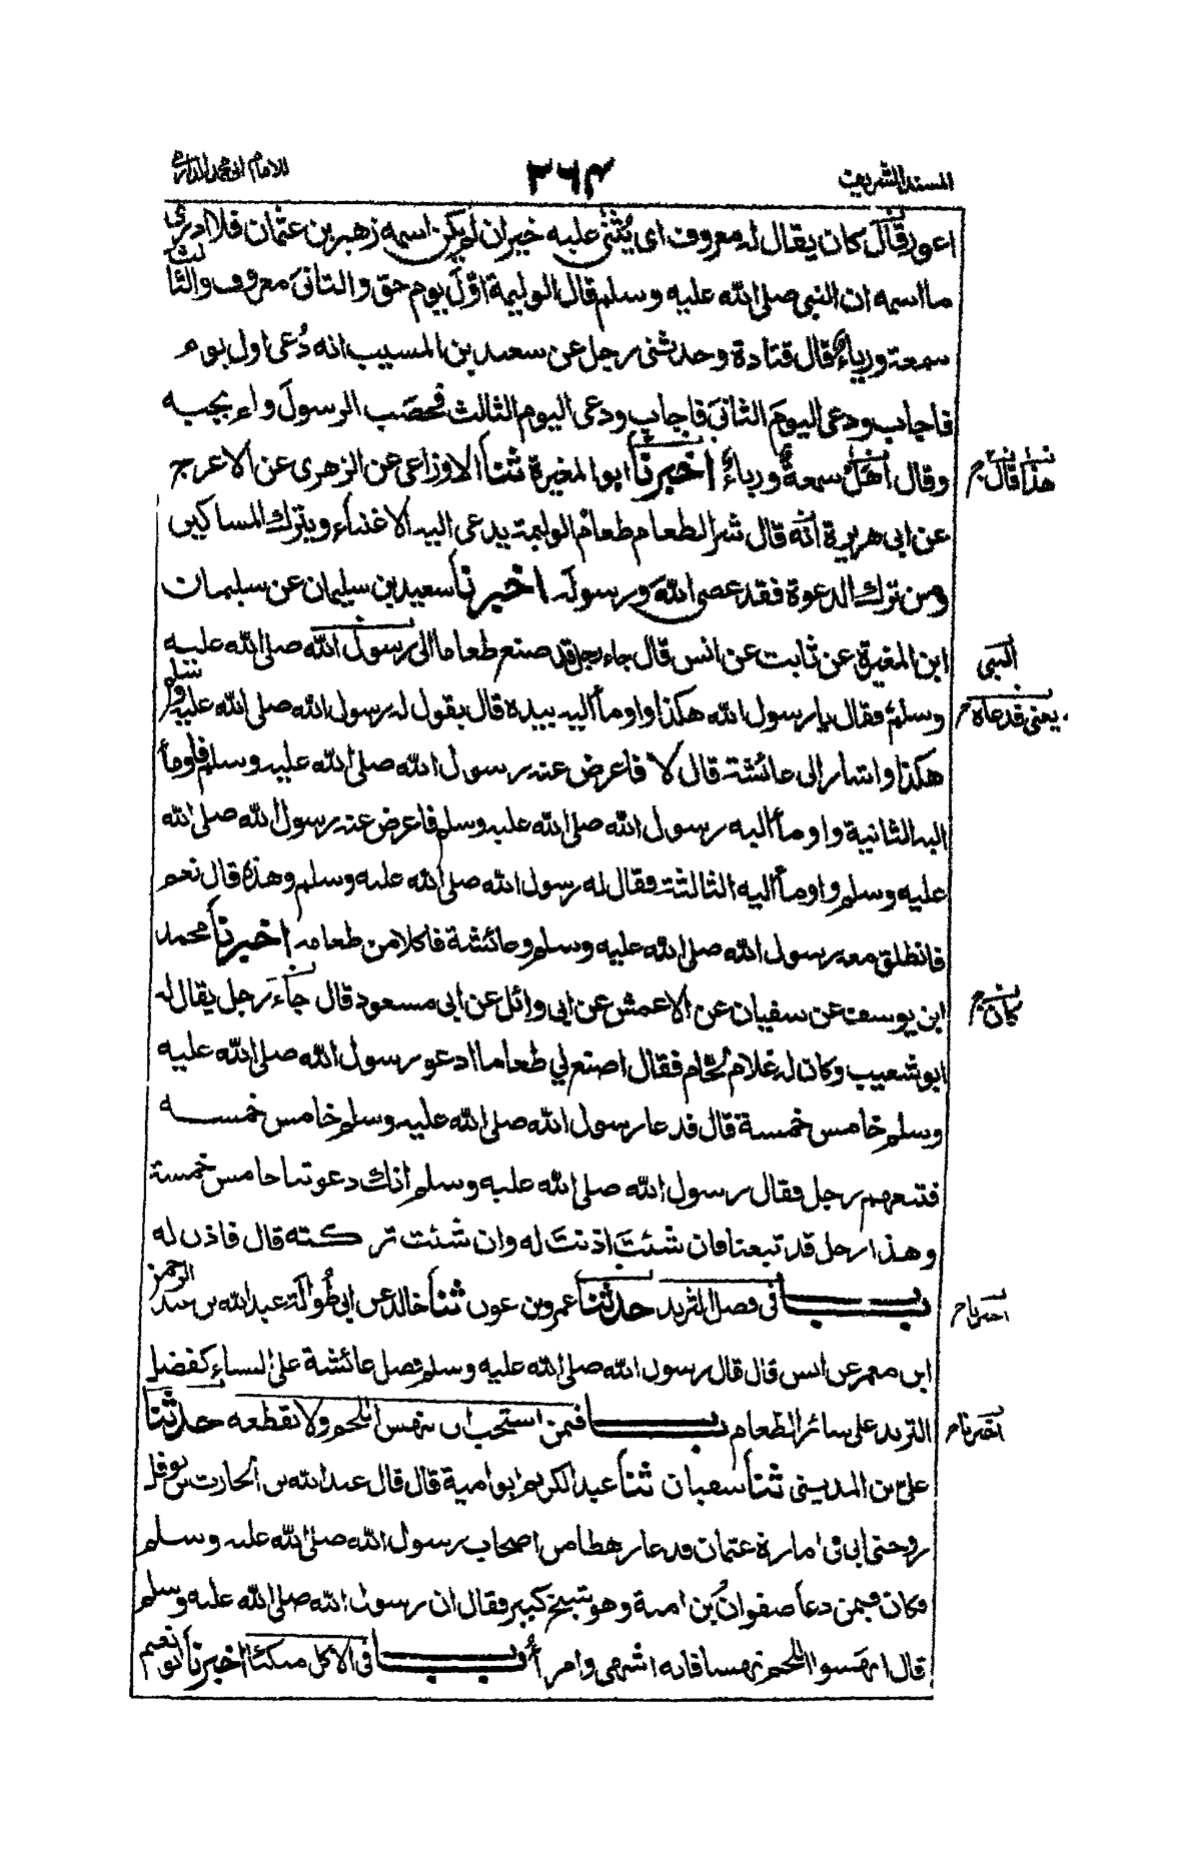 المسند الشريف ٢٦٤ للامام ابى محمد الدارمى
اعور قال كان يقال له معروف اى يُثنى عليه خير ان لم يكن اسمه زهير بن عثمان فلا ادرى
ما اسمه ان النبى صلى الله عليه وسلم قال الوليمة اوّل يوم حق والثانى معروف والثالث
سمعة ورياء قال قتادة وحدثنى رجل عن سعيد بن المسيب انه دُعى اول يوم
فاجاب ودعى اليوم الثانى فاجاب ودعى اليوم الثالث فحصَب الرسول ولم يجبه
وقال اهل سمعةٍ ورياءٍ اخبرنا ابو المغيرة ثنا الاوزاعى عن الزهرى عن الاعرج
هذا قال
عن ابى هريرة انه قال شر الطعام طعام الوليمة يدعى اليه الاغنياء ويترك المساكين
ومن ترك الدعوة فقد عصى الله ورسوله اخبرنا سعيد بن سليمان عن سليمان
ابن المغيرة عن ثابت عن انس قال جاء رجل قد صنع طعاما الى رسول الله صلى الله عليه
النبى
وسلم فقال يا رسول الله هكذا واومأ اليه بيده قال يقول له رسول الله صلى الله عليه وسلم
يعنى قد عاه
هكذا واشار الى عائشة قال لا فاعرض عنه رسول الله صلى الله عليه وسلم فاومأ
اليه الثانية واومأ اليه رسول الله صلى الله عليه وسلم فاعرض عنه رسول الله صلى الله
عليه وسلم واومأ اليه الثالثة فقال له رسول الله صلى الله عليه وسلم وهذه قال نعم
فانطلق معه رسول الله صلى الله عليه وسلم وعائشة فاكلا من طعامه اخبرنا محمد
ابن يوسف عن سفيان عن الاعمش عن ابى وائل عن ابى مسعود قال جاء رجل يقال له
كان
ابو شعيب وكان له غلام لحّام فقال اصنع لي طعاما ادعو رسول الله صلى الله عليه
وسلم خامس خمسة قال فدعا رسول الله صلى الله عليه وسلم خامس خمسه
فتبعهم رجل فقال رسول الله صلى الله عليه وسلم انك دعوتنا خامس خمسة
وهذا رجل قد تبعنا فان شئتَ اذنتَ له وان شئت تركته قال فاذن له
بـــاب فى فضل الثريد حدثنا عمرو بن عون ثنا خالد عن ابى طُوالة عبد الله بن عبد الرحمن
اخبرنا
ابن معمر عن انس قال قال رسول الله صلى الله عليه وسلم فضل عائشة على النساء كفضل
الثريد على سائر الطعام بـــاب فيمن استحب ان ينهس اللحم ولا يقطعه حدثنا
اخبرنا
على بن المدينى ثنا سفيان ثنا عبد الكريم ابو امية قال قال عبد الله بن الحارث بن نوفل
زوجنى ابى فى امارة عثمان فدعا رهطا من اصحاب رسول الله صلى الله عليه وسلم
فكان فيمن دعا صفوانُ بن امية وهو شيخ كبير فقال ان رسول الله صلى الله عليه وسلم
قال انهسوا اللحم نهسا فانه اشهى وامرأ بـــاب فى الاكل متكئا اخبرنا ابو نعيم